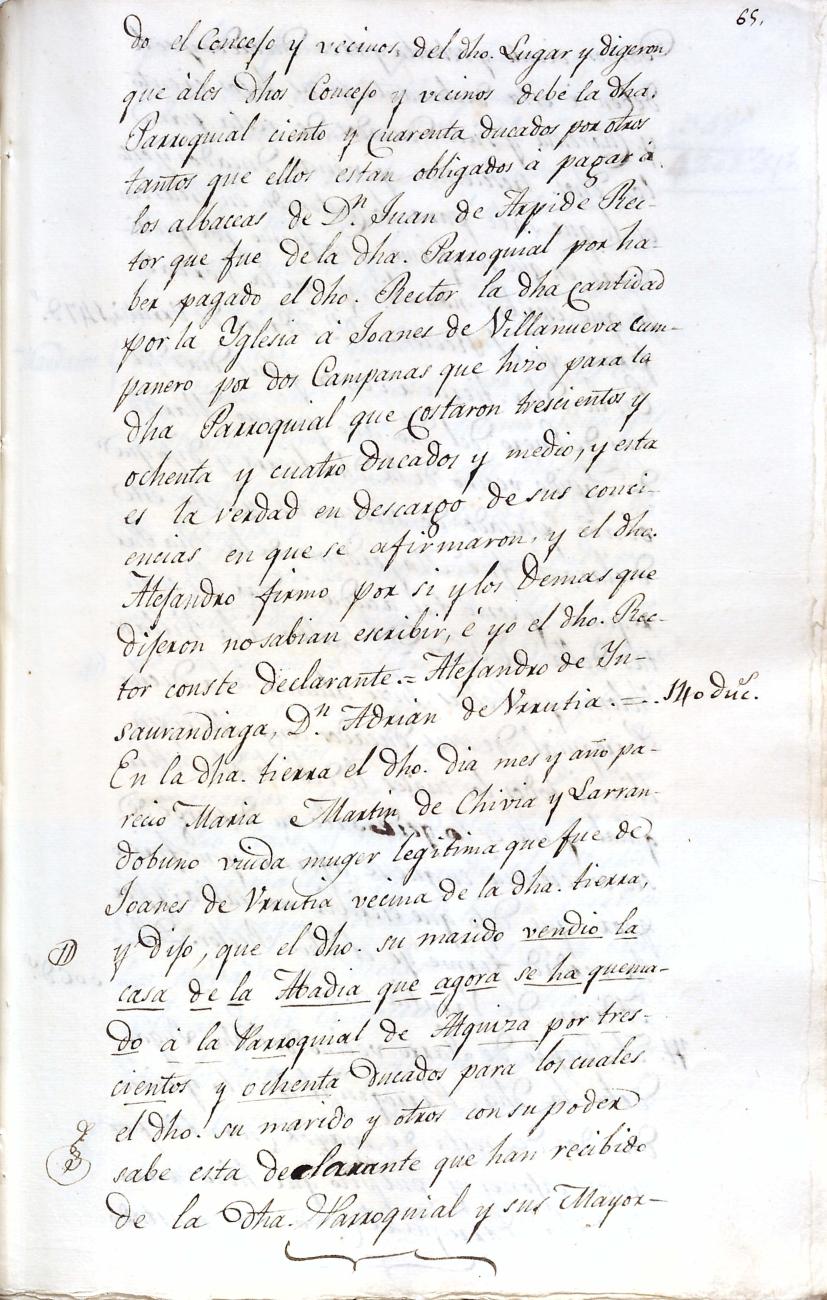 65.
do el Concejo y vecinos del dho. Lugar y digeron
que àlos dhos Concejo y vecinos debe la dha.
Parroquial ciento y cuarenta ducados por otros
tantos que ellos están obligados à pagar à
los albaceas de Dn. Juan de Arpide Rec-
tor que fue de la dha. Parroquial por ha-
ber pagado el dho. Rector la dha cantidad
por la Yglesia à Joanes de Villanueva cam-
panero por dos Campanas que hizo para la
dha Parroquial que costaron trescientos y
ochenta y cuatro ducados y medio, y esta
es la verdad en descargo de sus conci-
encias en que se afirmaron, y el dho.
Alejandro firmo por si y los demas que
dijeron no sabian escribir, é yo el dho. Rec-
tor conste declarante.= Alejandro de Yn-
saurandiaga, Dn. Adrian de Vrrutia.=. 140 duc.
En la dha. tierra el dho. dia mes y año pa-
reció Maria Martin de Chivia y Larran-
dobuno viuda muger legitima que fue de
Joanes de Vrrutia vecina de la dha. tierra,
y dijo, que el dho. su marido vendio la
casa de la Abadia que agora se ha quema-
do à la Parroquial de Alquiza por tres-
cientos y ochenta ducados para los cuales
el dho. su marido y otros con su poder
sabe esta declarante que han recibido
de la dha. Parroquial y sus Mayor-